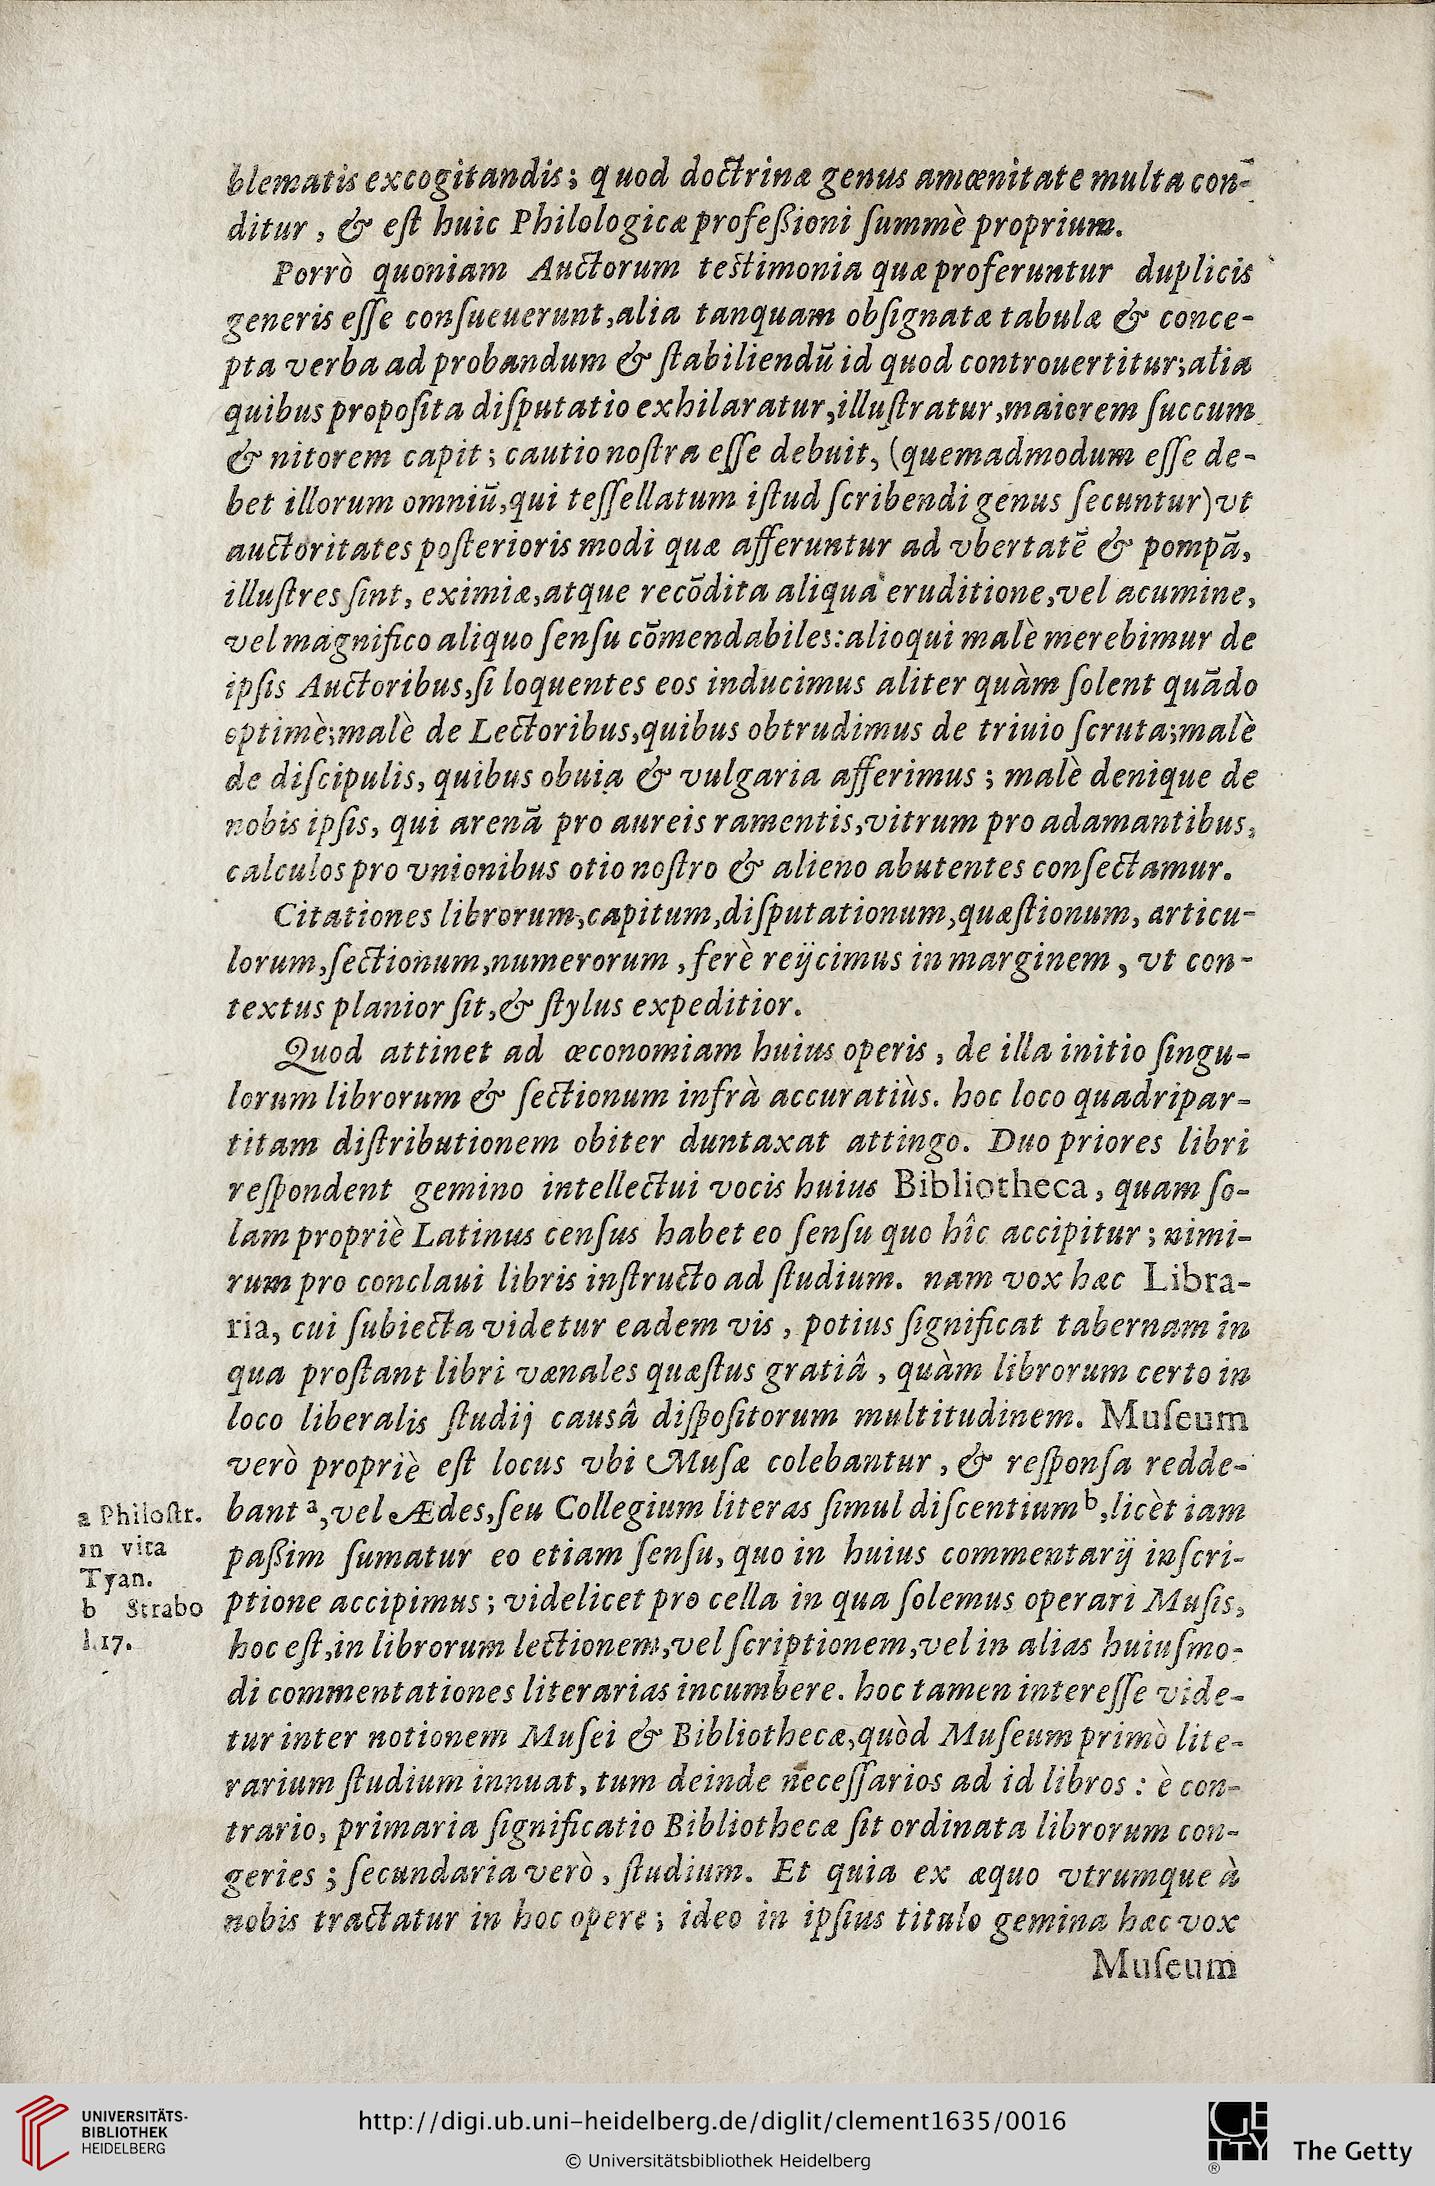 blematis excogitandis; quod doctrinæ genus amœnitate multa con-
ditur, & eſt huic Philologicæ profeßioni ſummè proprium.
Porrò quoniam Auctorum teſtimonia quæ proferuntur duplicis
generis eſſe conſueuerunt, alia tanquam obſignatæ tabulæ & conce-
pta verba ad probandum & ſtabiliendū id quod controuertitur; alia
quibus propoſita diſputatio exhilaratur, illuſtratur, maiorem ſuccum
& nitorem capit; cautio noſtra eſſe debuit, (quemadmodum eſſe de-
bet illorum omniū, qui teſſellatum iſtud ſcribendi genus ſecuntur) vt
auctoritates poſterioris modi quæ afferuntur ad vbertatē & pompā,
illuſtres ſint, eximiæ, atque recōdita aliqua eruditione, vel acumine,
vel magnifico aliquo ſenſu cōmendabiles: alioqui malè merebimur de
ipſis Auctoribus, ſi loquentes eos inducimus aliter quàm ſolent quādo
optimè; malè de Lectoribus, quibus obtrudimus de triuio ſcruta; malè
de diſcipulis, quibus obuia & vulgaria afferimus; malè denique de
nobis ipſis, qui arenā pro aureis ramentis, vitrum pro adamantibus,
calculos pro vnionibus otio noſtro & alieno abutentes conſectamur.
Citationes librorum, capitum, diſputationum, quæſtionum, articu-
lorum, ſectionum, numerorum, ferè reijcimus in marginem, vt con-
textus planior ſit, & ſtylus expeditior.
Quod attinet ad œconomiam huius operis, de illa initio ſingu-
lorum librorum & ſectionum infrà accuratiùs. hoc loco quadripar-
titam diſtributionem obiter duntaxat attingo. Duo priores libri
reſpondent gemino intellectui vocis huius Bibliotheca, quam ſo-
lam propriè Latinus cenſus habet eo ſenſu quo hîc accipitur; nimi-
rum pro conclaui libris inſtructo ad ſtudium. nam vox hæc Libra-
ria, cui ſubiecta videtur eadem vis, potius ſignificat tabernam in
qua proſtant libri vænales quæſtus gratiâ, quàm librorum certo in
loco liberalis ſtudij causâ diſpoſitorum multitudinem. Muſeum
verò propriè eſt locus vbi Muſæ colebantur, & reſponſa redde-
bant a, vel Ædes, ſeu Collegium literas ſimul diſcentium b, licèt iam
paßim ſumatur eo etiam ſenſu, quo in huius commentarij inſcri-
ptione accipimus; videlicet pro cella in qua ſolemus operari Muſis,
hoc eſt, in librorum lectionem, vel ſcriptionem, vel in alias huiuſmo-
di commentationes literarias incumbere. hoc tamen intereſſe vide-
tur inter notionem Muſei & Bibliothecæ, quòd Muſeum primò lite-
rarium ſtudium innuat, tum deinde neceſſarios ad id libros: è con-
trario, primaria ſignificatio Bibliothecæ ſit ordinata librorum con-
geries; ſecundaria verò, ſtudium. Et quia ex æquo vtrumque à
nobis tractatur in hoc opere; ideo in ipſius titulo gemina hæc vox
Muſeum
a Philoſtr.
in vita
Tyan.
b Strabo
l.17.
UNIVERSITÄTS-
BIBLIOTHEK
HEIDELBERG
http://digi.ub.uni-heidelberg.de/diglit/clement1635/0016
© Universitätsbibliothek Heidelberg
GETTY
®
The Getty